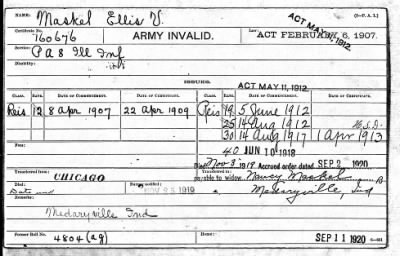 NAME: Maskel Ellis V. (3—D.A.I.)
Certificate No. 760676 ARMY INVALID. Law. ACT FEBRUARY 6, 1907.
ACT MAY 11, 1912.
Service: P A 8 Ill Inf
Disability:
ISSUES.
ACT MAY 11, 1912.
CLASS. RATE. DATE OF COMMENCEMENT. DATE OF CERTIFICATE. CLASS. RATE. DATE OF COMMENCEMENT. DATE OF CERTIFICATE.
Reis 12 8 Apr 1907 22 Apr 1909 Reis 19 5 June 1912
25 14 Aug 1912
30 14 Aug 1917 1 Apr 1913
40 JUN 10 1918
Died Nov 3 1919 Accrued order dated SEP 2 1920
Transferred from CHICAGO payable to widow Nancy Maskel
Died: Date und Date notified: NOV 25 1919 Medaryville, Ind
Medaryville Ind
Former Roll No. 4804 (ag) SEP 11 1920